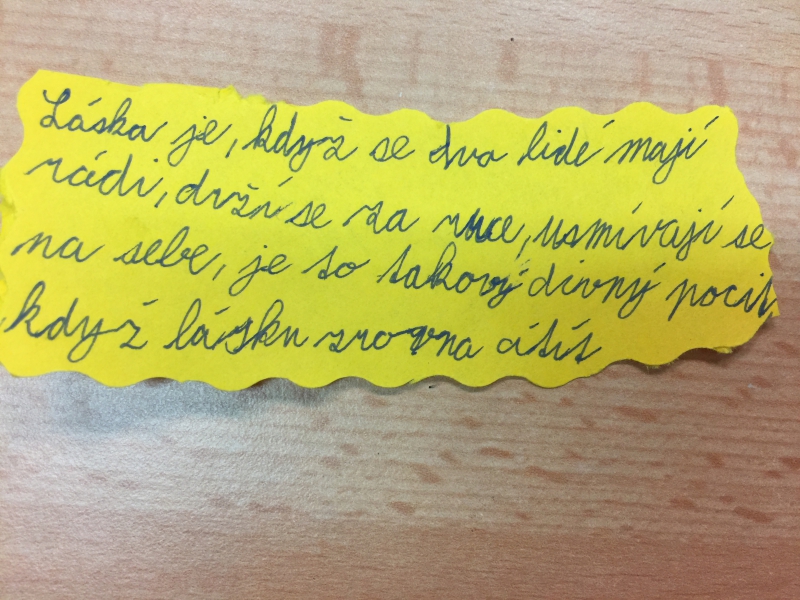 Láska je, když se dva lidé mají
rádi, drží se za ruce, usmívají se
na sebe, je to takový divný pocit
když lásku zrovna cítíš